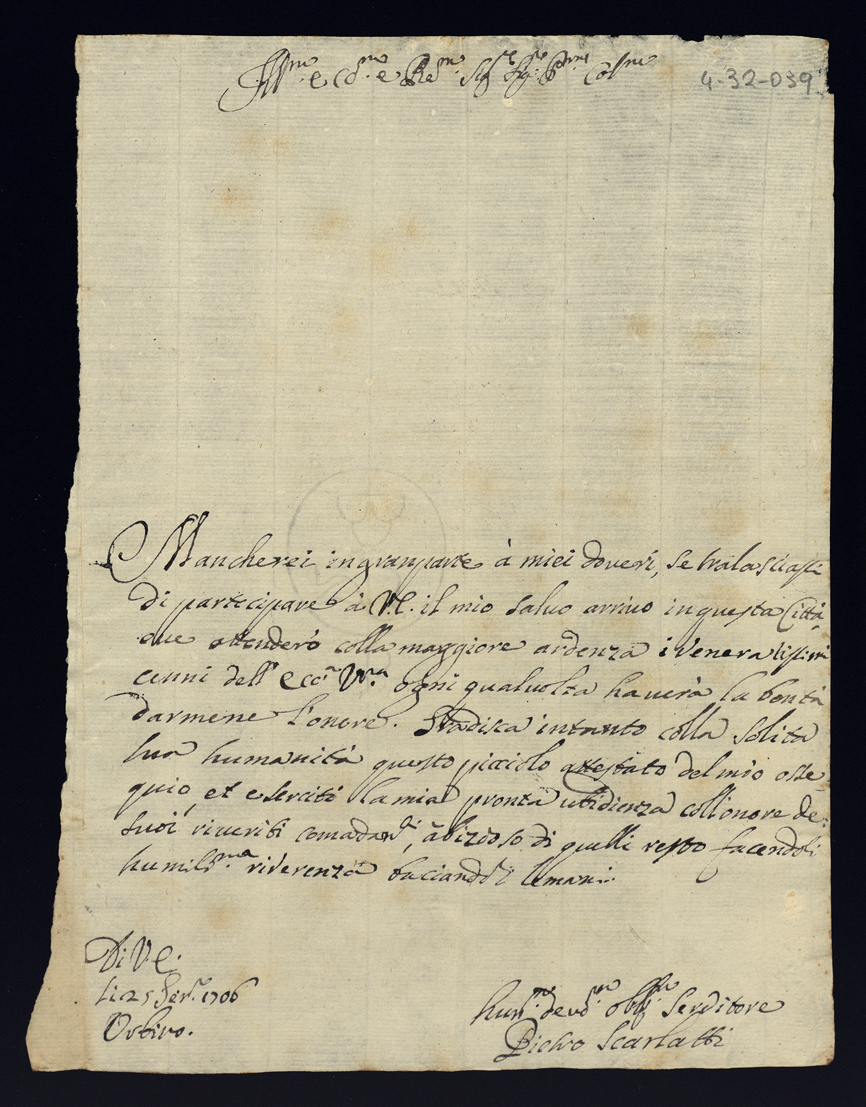 Ill.mo e e Re.mo Sig.re Sig.re P.rone Col.mo
4-32-039
Mancherei in gran parte à miei doveri, se tralasciassi
di partecipare à V.E. il mio salvo arrivo in questa Città
ove attenderò colla maggiore ardenza i veneratissimi
cenni dell' Ecc.a V.ra ogni qualvolta haverà la bontà
darmene l'onore. Gradisca intanto colla solita
sua humanità questo picciolo attestato del mio osse-
quio, et eserciti la mia pronta ubidienza coll'onore de
suoi riveriti comādi, di quelli resto facendoli
humiliss.ma riverenza baciandoli le mani.
Di V.E.
li 25 1706
Orbino.
Hum.mo devo.mo obb.mo Servitore
Pietro Scarlatti